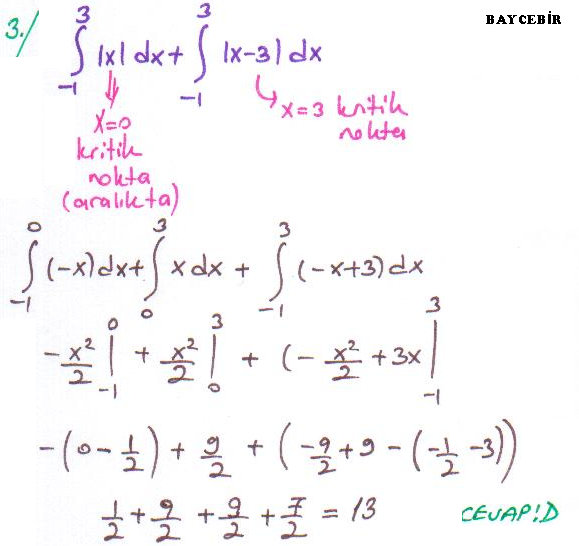 BAYCEBİR
3./ ∫₋₁³ |x| dx + ∫₋₁³ |x-3| dx
x=0 kritik nokta (aralıkta)
x=3 kritik nokta
∫₋₁⁰ (-x)dx + ∫₀³ x dx + ∫₋₁³ (-x+3) dx
-x²/2 |₋₁⁰ + x²/2 |₀³ + (-x²/2 + 3x |₋₁³
-(0 - 1/2) + 9/2 + (-9/2 + 9 - (-1/2 - 3))
1/2 + 9/2 + 9/2 + 7/2 = 13
CEVAP!D